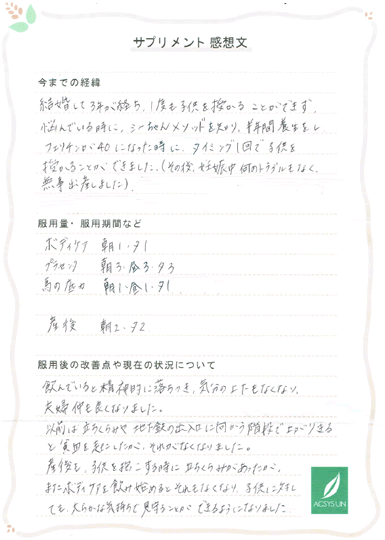 サプリメント 感想文
今までの経緯
結婚して3年が経ち、1度も子供を授かることができず、
悩んでいる時に、しーちゃんメソッドを知り、半年間養生をし
フェリチンが40になった時に、タイミング1回で子供を
授かることができました。(その後、妊娠中何のトラブルもなく、
無事出産しました)
服用量・服用期間など
ボディケア 朝1・夕1
プラセンタ 朝3・昼3・夕3
馬の底力 朝1・昼1・夕1
産後 朝2・夕2
服用後の改善点や現在の状況について
飲んでいると精神的に落ちつき、気分の上下もなくなり、
夫婦仲も良くなりました。
以前は立ちくらみや地下鉄の出入口に向かう階段で上がりきる
と貧血を起こしたが、それがなくなりました。
産後も、子供を抱っこする時に立ちくらみがあったが、
またボディケアを飲み始めるとそれもなくなり、子供に対し
ても、大らかな気持ちで見守ることができるようになりました。
ACSYSUN